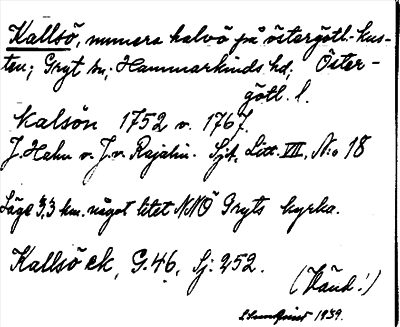 Kallsö, numera halvö på östergötl.-kus-
ten; Gryt sn; Hammarkinds hd; Öster-
götl. l.
Kalsön 1752 v. 1767.
J. Hahn v. J. v. Rajalin. Sjk. Litt. VII, No 18
Läge 3,3 km. något litet NNÖ Gryts kyrka.
Kallsö ek, G.46, Sj: 252.
(Vänd!)
1939.